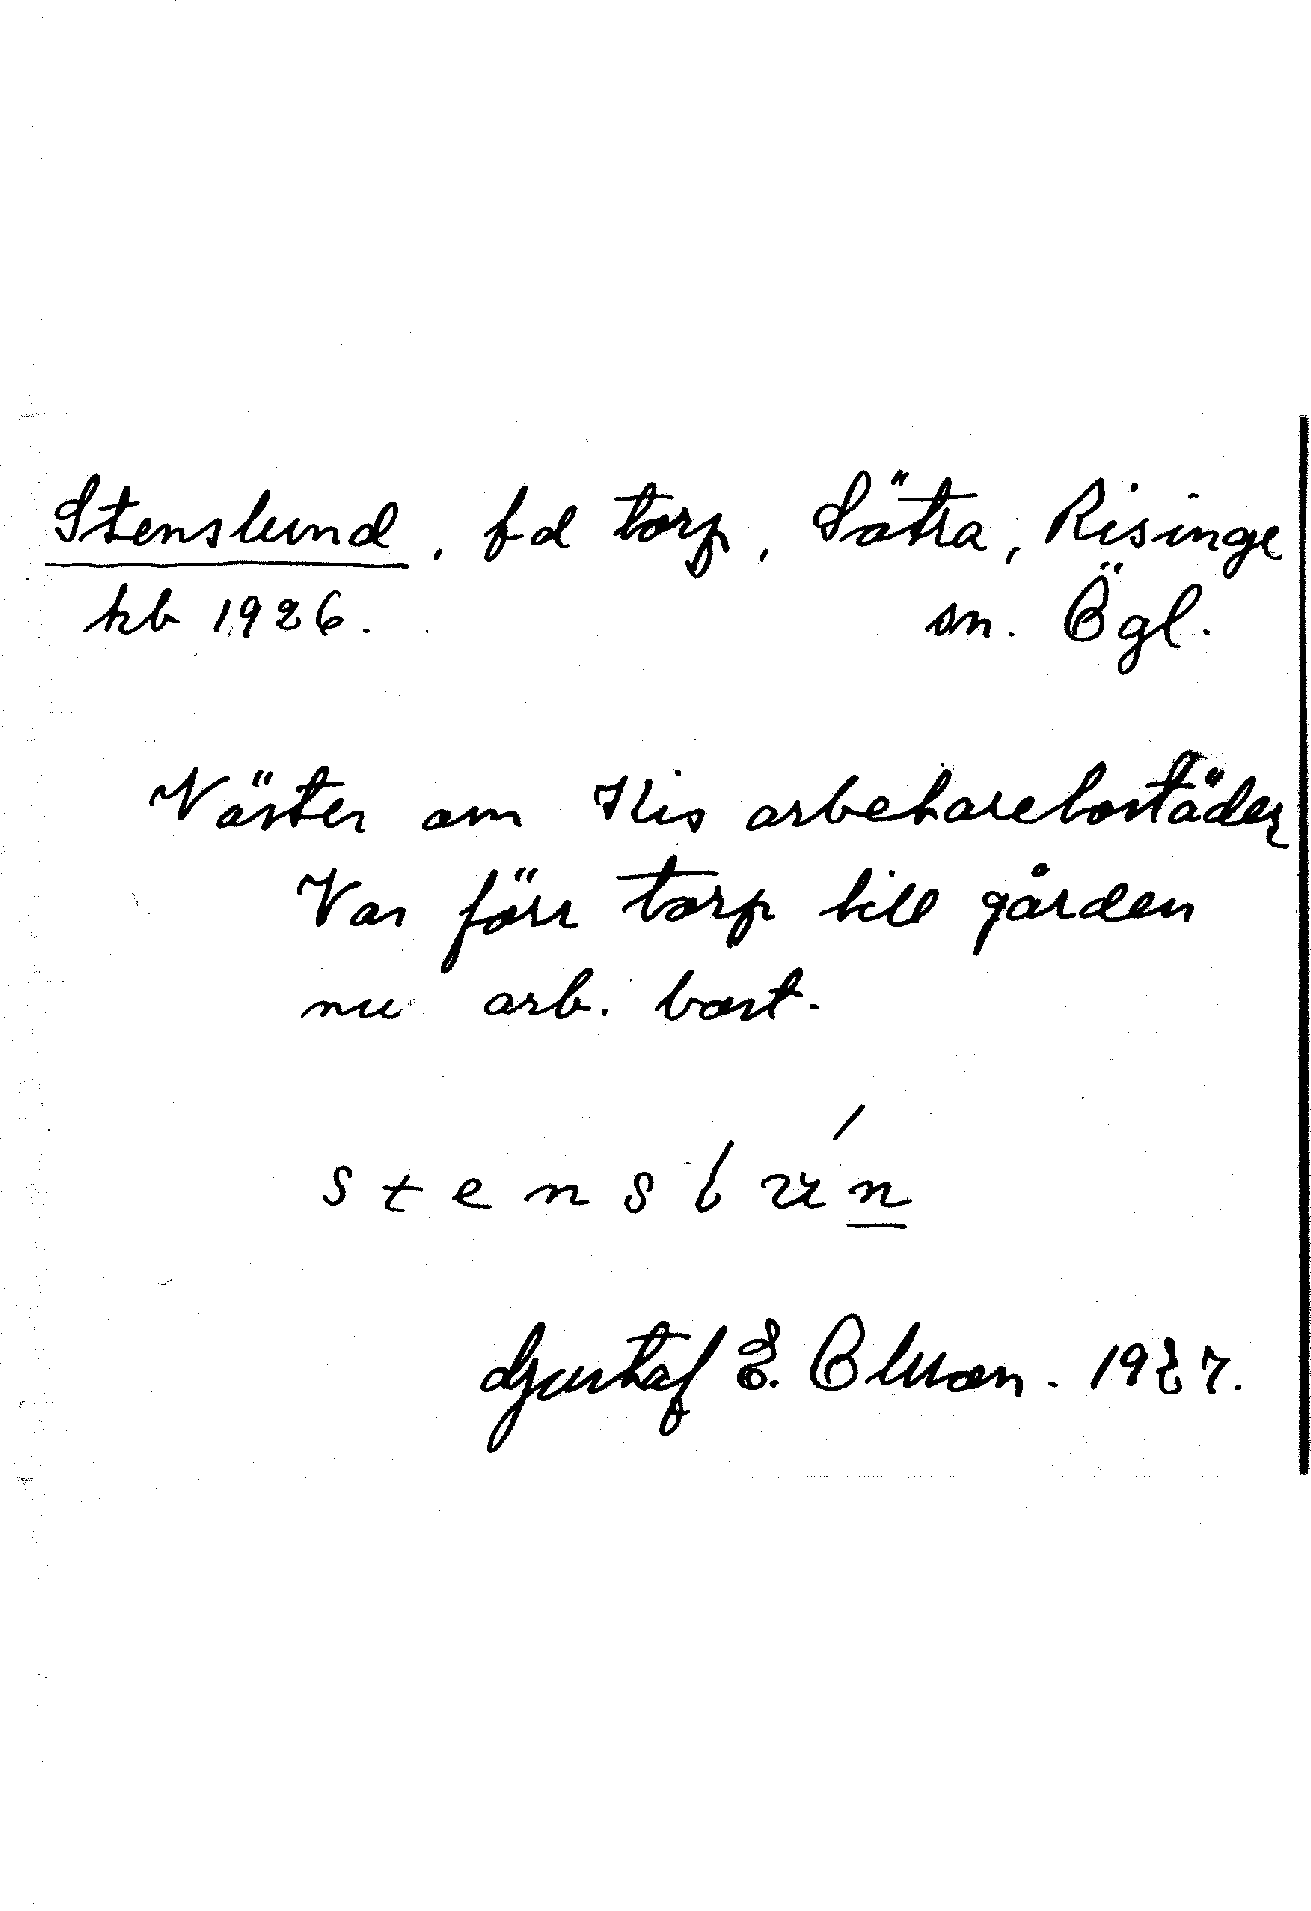 Stenslund, fd torp, Sätra, Risinge
kb 1926. sn. Ögl.
Väster om Kis arbetarebostäder
Var förr torp till gården
nu arb. bost.
stenslún
Gustaf E. Olsson. 1927.